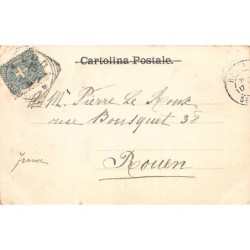 Cartolina Postale.
M. Pierre Le Roux
rue Bousquet 38
Rouen
France